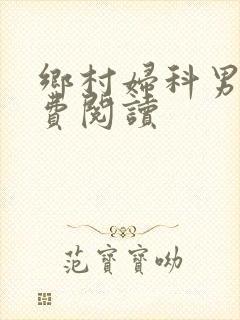 鄉村婦科男
費閱讀
范寶寶呦